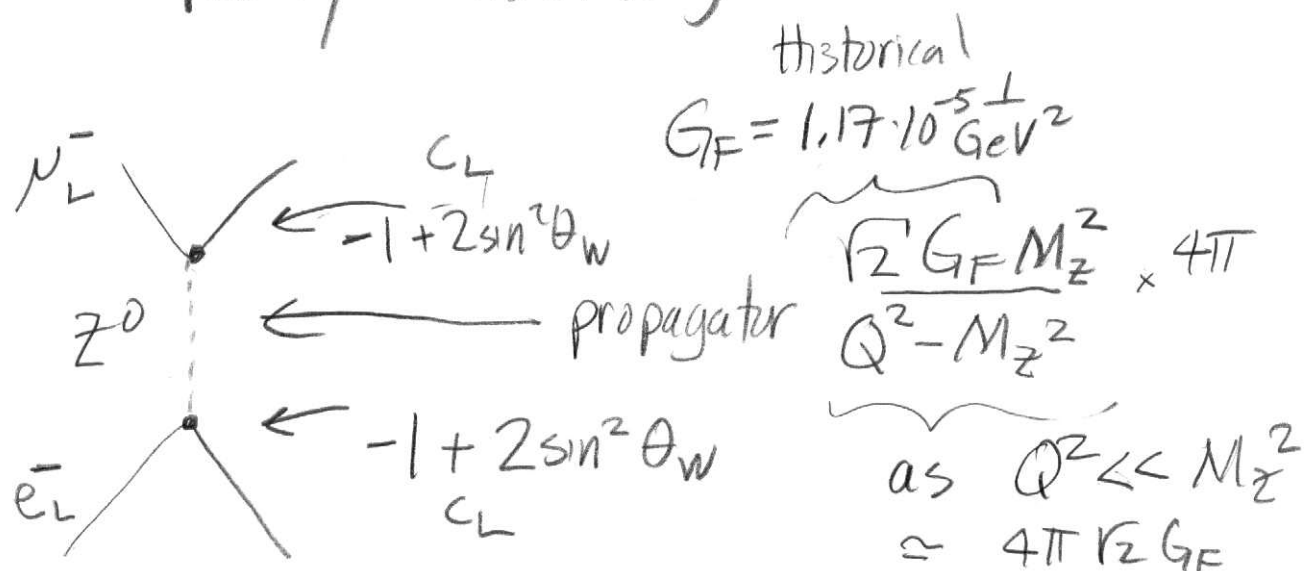 Historical
G_F = 1.17·10^-5 1/GeV^2
μ_L^-
C_L
-1+2sin^2θ_W
Z^0
propagator
√2 G_F M_Z^2 / Q^2 - M_Z^2 × 4π
e_L^-
-1 + 2sin^2 θ_W
C_L
as Q^2 << M_Z^2
≃ 4π √2 G_F